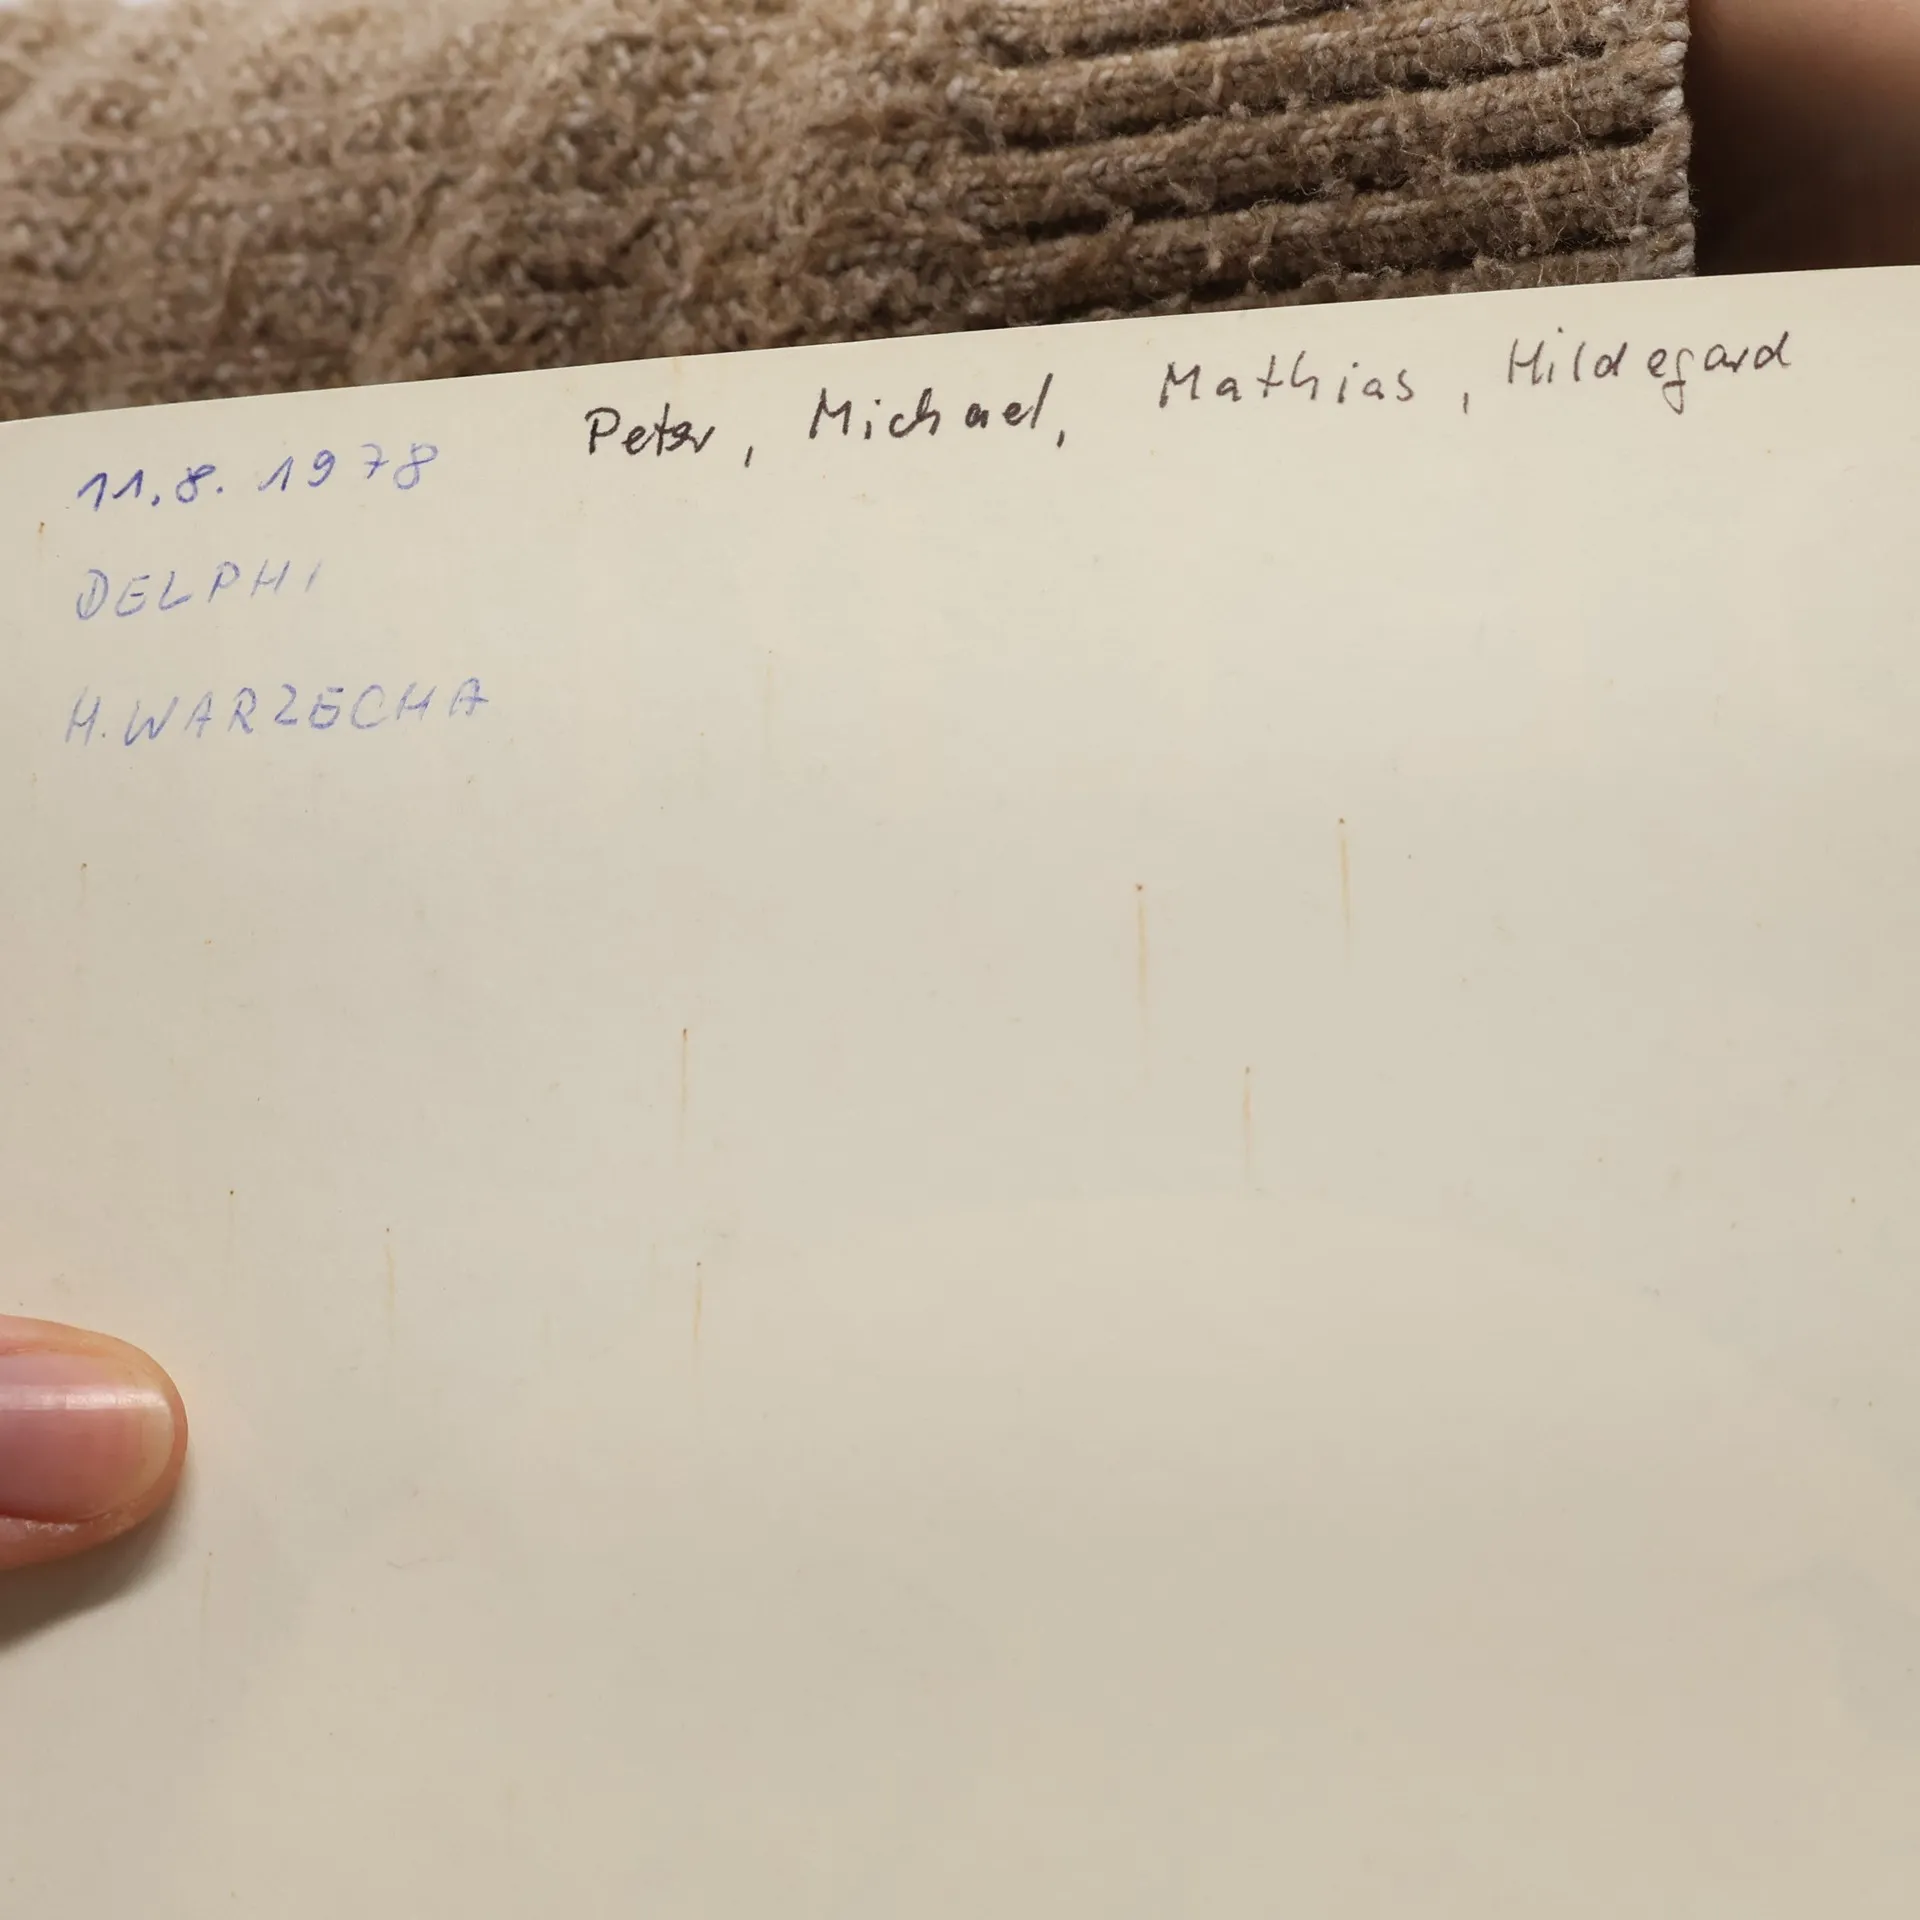 Peter, Michael, Mathias, Hildegard
11.8.1978
DELPHI
H. WARZECHA